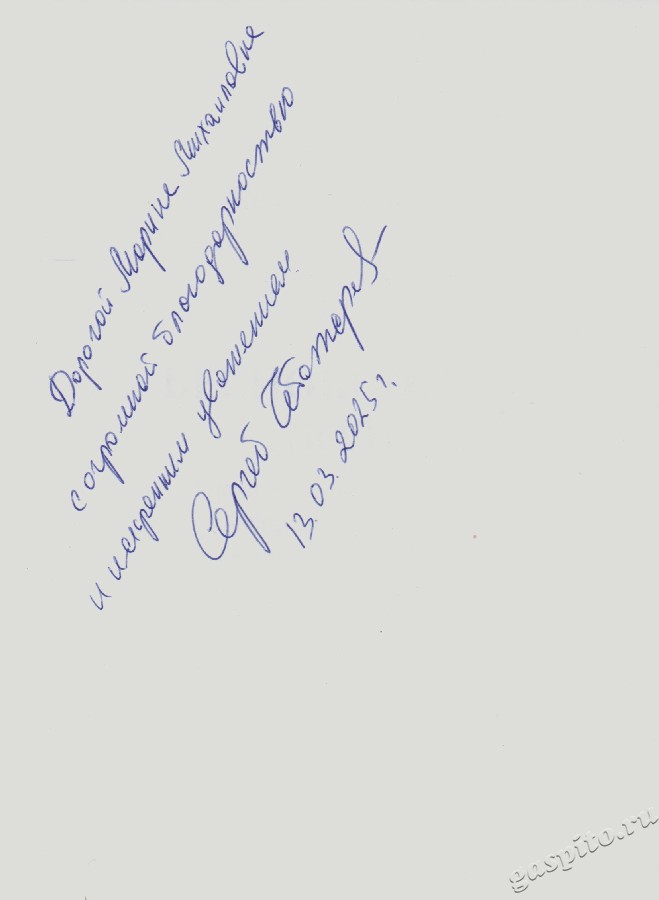 Дорогой Марине Михайловне
с огромной благодарностью
и искренним уважением.
Сергей
13.03.2025 г.
gaspito.ru